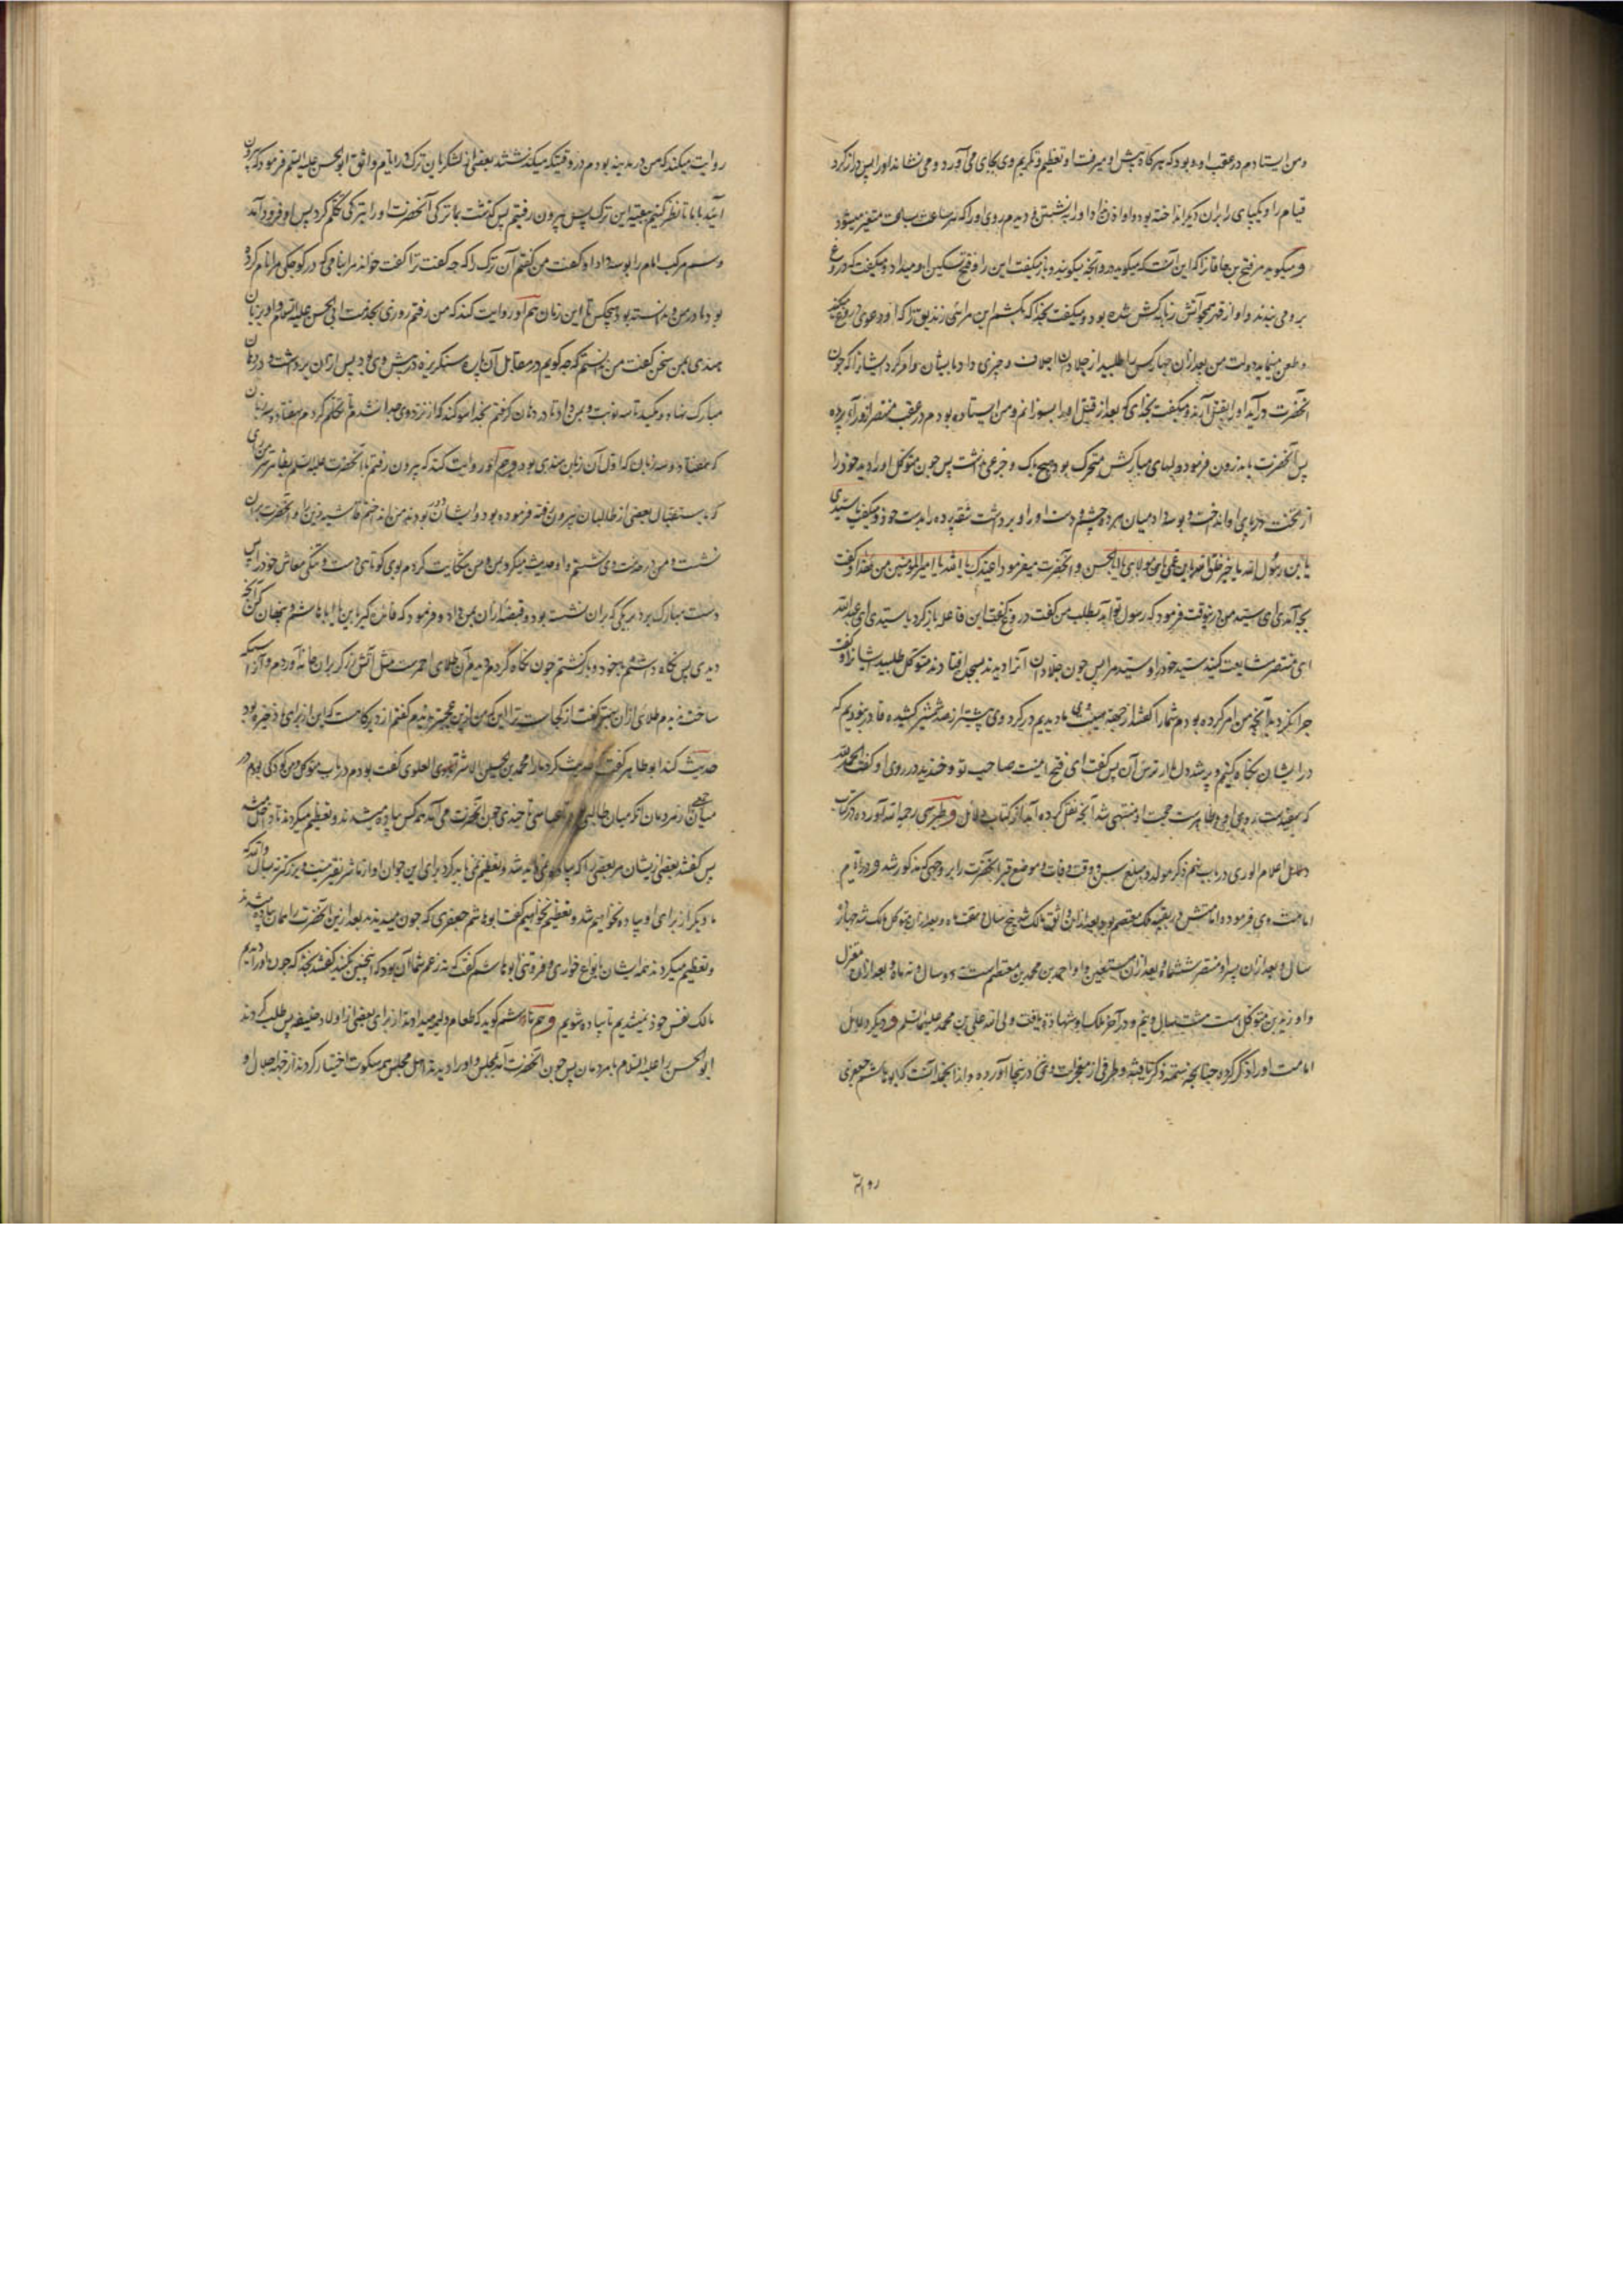 و من ایستادم در عقب او و بود که هرگاه پیش او میرفت او تعظیم و تکریم وی بجای می آورد و می نشاند او را پس دراز کرد
قیام را و یکپای را بران دیگر انداخته بود و او را نشستن و دیدم روی او را که ساعت بساعت متغیر میشود
و میگوید مر فتح بن خاقان را که این آنست که میگوید در و آنچه میگویند و باز میگفت این را و فتح تسکین او میداد و میگفت که دروغ
بر وی بندند و او از قهر همچو آتش زبانه کش شده بود و میگفت بخدا که بکشم این مرائی زندیق را که او دعوی دروغ میکند
و طعن مینماید در دولت من بعد ازان چهار کس را طلبید از جلادان اجلاف و چیزی داد بایشان و امر کرد ایشانرا که چون
آنحضرت در آید او را بقتل آرند و میگفت بخدای که بعد از قتل او را بسوزانم و من ایستاده بودم در عقب منتصر از ورای پرده
پس آنحضرت باندرون فرمود و لبهای مبارکش متحرک بود و هیچ باک و جزعی نداشت پس چون متوکل او را دید خود را
از تخت در پای او انداخت و بوسه داد میان هر دو چشم و دست او را و برداشت شقه پرده را بدست خود و میگفت یا سیدی
یا بن رسول الله یا خیر خلق الله یا بن عمی یا مولای یا ابا الحسن و آنحضرت میفرمود اعیذک بالله یا امیر المؤمنین من هذا و گفت
بچه آمدی ای سید من درین وقت فرمود که رسول تو آمد بطلب من گفت دروغ گفت این فاعله باز گرد یا سیدی ای عبدالله
ای منتصر مشایعت کنید سید خود را و سید مرا پس چون جلادان آنرا دیدند بسجده افتادند متوکل طلبید ایشانرا و گفت
چرا نکردید آنچه من امر کرده بودم شما را گفتند از جهة هیبت وی ما دیدیم در گرد وی بیشتر از صد شمشیر کشیده قادر نبودیم که
در ایشان نگاه کنیم و پر شد دل ما از ترس آن پس گفت ای فتح اینست صاحب تو و خندید در روی او و گفت الحمد لله
که سفید ساخت روی او و ظاهر ساخت حجت او منتهی شد آنچه نقل کرده آمد از کتاب دلایل و طبرسی رحمه الله آورده در کتاب
اعلام الوری در باب نهم ذکر مولد و مبلغ سن و وقت وفات و موضع قبر آنحضرت را بر وجهی که مذکور شد و در ایام
امامت وی فرموده و امامتش در بقیه ملک معتصم بود بعد ازان واثق مالک شد پنج سال و هفت ماه و بعد ازان متوکل مالک شد چهارده
سال و بعد ازان پسر او منتصر ششماه و بعد ازان مستعین و او احمد بن محمد بن معتصم است دو سال و نه ماه و بعد ازان معتز
و او زبیر بن متوکل است هشت سال و نیم و در آخر ملک او شهادة یافت ولی الله علی بن محمد علیهما السلم و دیگر دلایل
امامت او را ذکر کرده چنانچه سمت ذکر یافته و طرفی از معجزات وی در ینجا آورده و از انجمله آنست که ابو هاشم جعفری
روایت
روایت میکند که من در مدینه بودم در وقتیکه میگذشتند بعضی از لشکریان ترک در ایام واثق ابو الحسن علیه السلم فرمود که بیرون
آئید با ما تا نظر کنیم بتعبیه این ترک پس بیرون رفتیم پس گذشت بما ترکی آنحضرت او را بترکی تکلم کرد پس او فرود آمد
و سم مرکب امام را بوسه داد او گفت من گفتم آن ترک را که چه گفت ترا گفت خواند مرا بنامی که در کوچکی مرا نام کرده
بودند و ندانسته بود هیچکس تا این زمان هم او روایت کند که من رفتم روزی بخدمت ابی الحسن علیه السلام و او بزبان
هندی بمن سخن گفت من ندانستم که چه گویم در مقابل آن پاره سنگریزه در پیش وی بود پس ازان برداشت و در دهان
مبارک نهاد و مکید تا سه نوبت و بمن داد تا در دهان گرفتم بخدا سوگند که از نزد وی جدا نشدم تا تکلم کردم بهفتاد و سه زبان
که اول آن زبان هندی بود و هم او روایت کند که بیرون رفتم با آنحضرت علیه السلم بظاهر سر من رای
که باستقبال بعضی از طالبیان بیرون رفته فرموده بود و ایشان دور بودند من انداختم غاشیه زین را و آنحضرت بران
نشست و من در خدمت وی نشستم و او حدیث میکرد بمن و من شکایت کردم بوی کوتاهی دست و تنگی معاش خود را پس
دست مبارک برد بریگی که بران نشسته بود و قبضه ازان بمن داد و فرمود که فائده گیر باین یا ابا هاشم و پنهان کن آنچه
دیدی پس نگاه داشتم با خود و بازگشتم چون نگاه کردم دیدم آن طلای احمر است مثل آتش زرگر بران خانه آوردم و آنرا سبیکه
ساخت ندیدم طلای ازان بهتر گفت از کجاست ترا این که من ازین عجبتر ندیدم گفتم از دیرگاهست که این از برای ما ذخیره بود
حدیث کند ابو طاهر گفت حدیث کرد ما را محمد بن الحسین الاشتر العلوی گفت بودم در باب متوکل و من کودکی بودم در
میان جمعی از مردمان که میان طالبی و عباسی تا جندی چون آنحضرت می آمد همه کس پیاده میشدند و تعظیم میکردند تا داخل میشد
پس گفتند بعضی از یشان مر بعضی را که پیاده نمی باید شد و تعظیم نمی باید کرد برای این جوان او از ما شریفتر نیست و بزرگتر نه بسال والله که
ما دیگر از برای او پیاده نخواهیم شد و تعظیم نخواهیم کرد گفت ابو هاشم جعفری که چون میبینند بعد ازین آنحضرت را همان پیاده میشدند
و تعظیم میکردند همه ایشان بانواع خواری و فروتنی ابو هاشم گفت که نه زعم شما آن بود که اینچنین نکنید گفتند بخدا که چون او را دیدیم
مالک نفس خود نبودیم تا پیاده شویم و هم ابو هاشم گوید که طعام ولیمه میدادند از برای بعضی از اولاد خلیفه پس طلب کردند
ابو الحسن را علیه السلام با مردمان پس چون آنحضرت آمد بمجلس و او را دیدند اهل مجلس همه سکوت اختیار کردند از جهة اجلال او